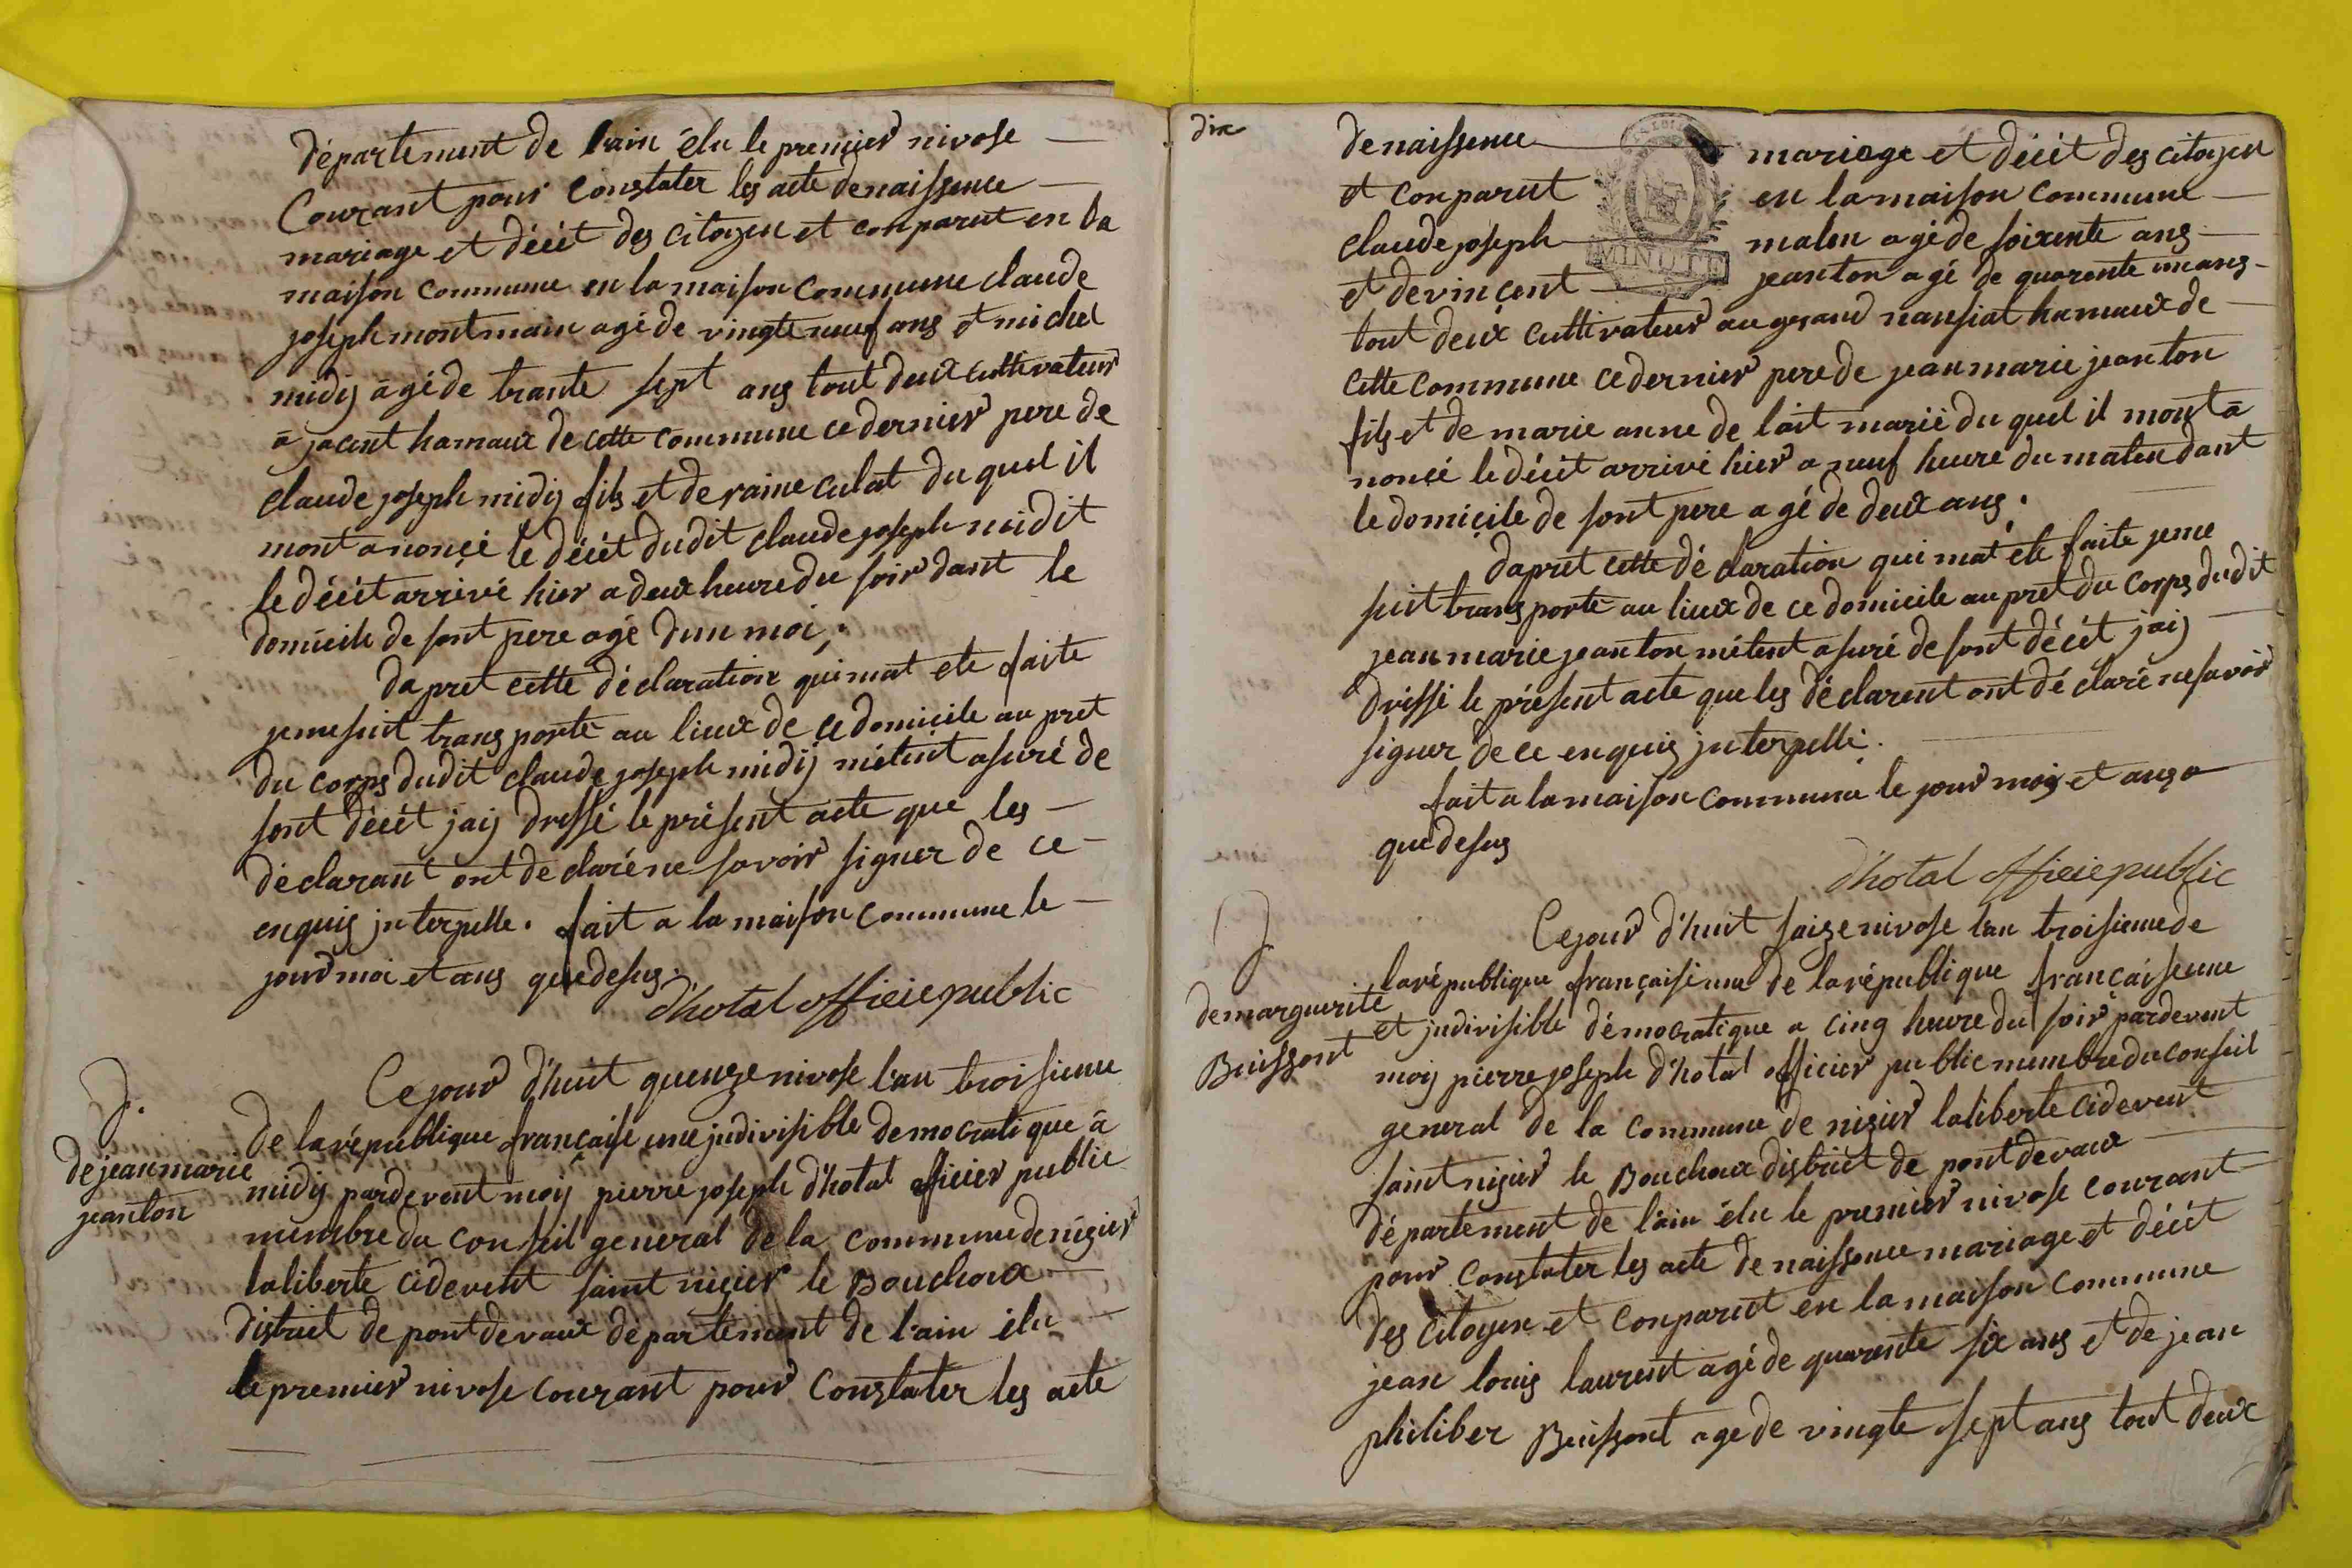 département de l'ain élu le premier nivose
Courant pour constater les acte de naissence
mariage et décèt des citoyen et conparut en la
maison commune en la maison commune claude
joseph montmain agé de vingte neuf ans et michel
midij agé de trante sept ans tout deux cultivateur
a jacent hamaux de cette commune ce dernier pere de
claude joseph midij fils et de raine culat du quel il
mont anoncé le décèt dudit claude joseph midit
le décèt arrivé hier a deux heure du soir dant le
domicile de sont pere agé dun moi.
dapret cette déclaration qui mat ete faite
je me suit transporté au lieux de ce domicile au pret
du corps dudit claude joseph midij métent asuré de
sont décèt jaij dressé le présent acte que les
déclarant ont declaré ne savoir signer de ce
enquis interpelle. fait a la maison commune le
jour moi et ans que desus.
d'hotal officie public
D.
de jean marie
jeanton
Ce jour d'huit quenze nivose l'an troisieme
de la république française une jndivisible democratique à
midij pardevent moij pierre joseph d'hotal officier public
membre du conseil general de la commune de nisier
la liberte cidevent saint nisier le Bouchoux
district de pont de vaux département de l'ain élu
le premier nivose courant pour constater les acte
dix
de naissence mariage et décèt des citoyen
et conparut en la maison commune
claude joseph malen agé de soixente ans
et de vincent jeanton agé de quarente un ans
tout deux cultivateur au grand nansiat hamaux de
cette commune ce dernier pere de jean marie jeanton
fils et de marie anne de lait marié du quel il mont a
noncé le décèt arrivé hier a neuf heure du maten dant
le domicile de sont pere agé de deux ans.
dapret cette déclaration qui mat ete faite je me
suit transporté au lieux de ce domicile au pret du corps dudit
jean marie jeanton métent asuré de sont décèt jaij
dressé le présent acte que les déclarent ont déclaré ne savoir
signer de ce enquis jnterpellé.
fait a la maison commune le jour mois et ans
que desus
d'hotal officie public
D.
de marguerite
Buissont
Ce jour d'huit saize nivose l'an troisieme de
la république française une de la république française une
et jndivisible démocratique a cinq heure du soir pardevent
moij pierre joseph d'hotal officier public membre du conseil
general de la commune de nisier la liberte cidevent
saint nisier le Bouchoux district de pont de vaux
département de l'ain élu le premier nivose courant
pour constater les acte de naissence mariage et décèt
des citoyen et conparut en la maison commune
jean louis laurent agé de quarente six ans et de jean
philiber Buissont age de vingte sept ans tout deux
MINUTE